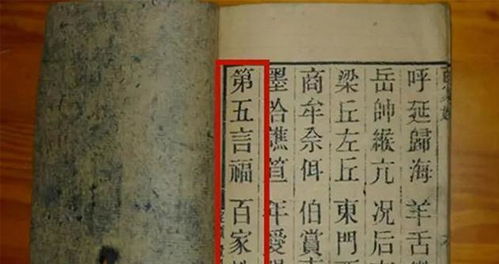 呼延歸海 羊舌
岳帥緱亢 况后
梁丘左丘 東門
商牟佘佴 伯賞
墨哈譙笪 年愛
第五言福 百家